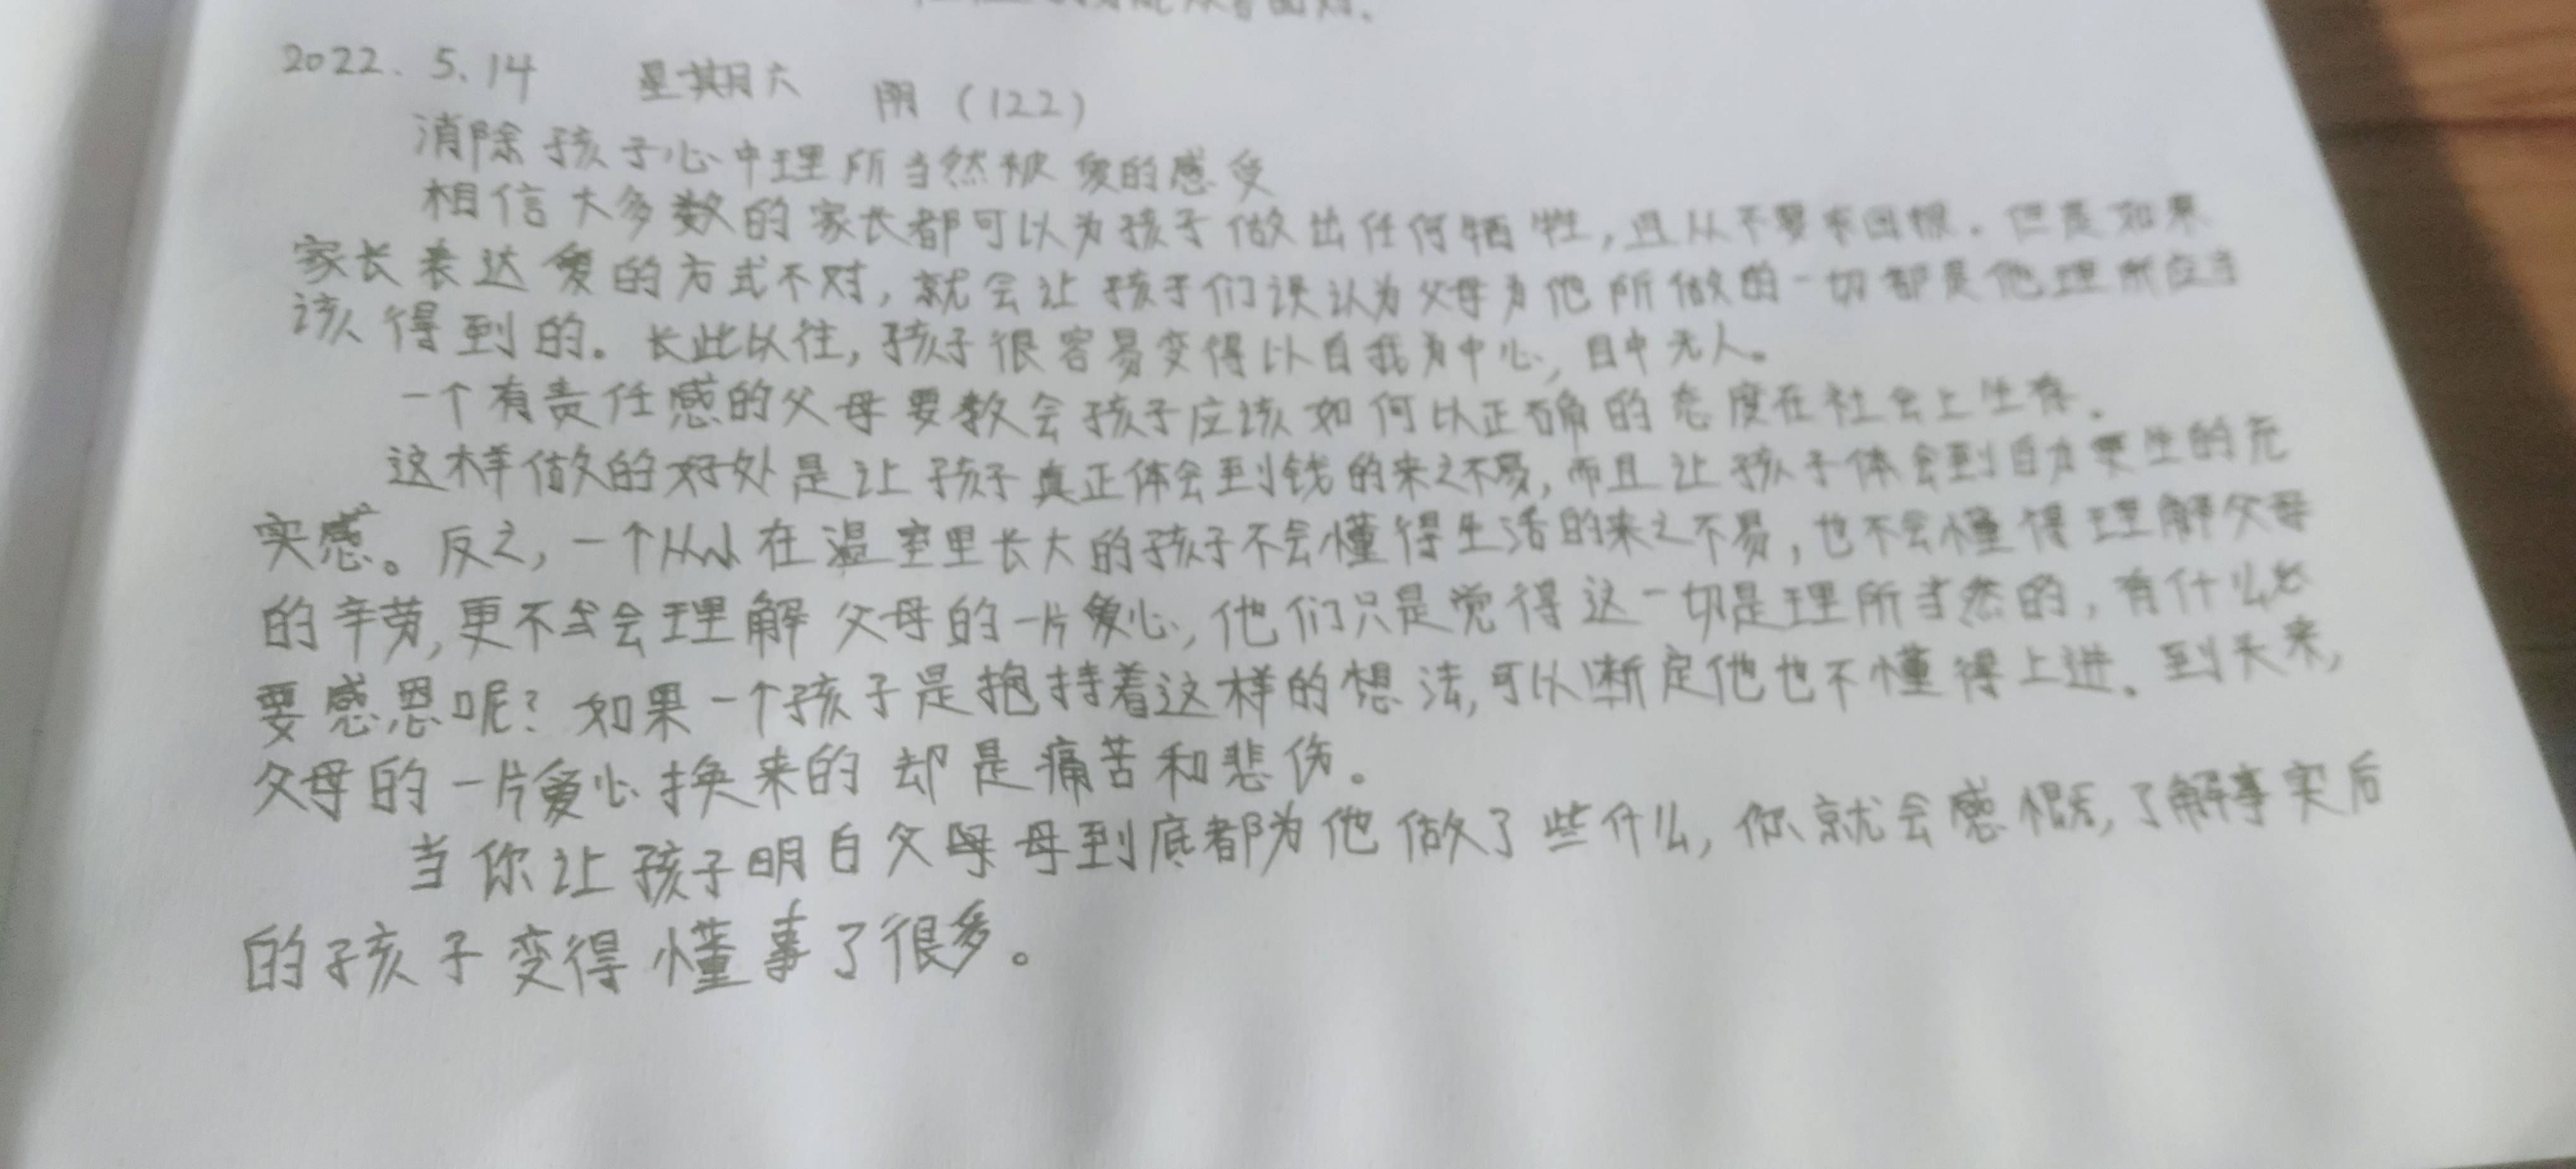 2022.5.14 星期六 阴（122）
消除孩子心中理所当然被爱的感受
相信大多数的家长都可以为孩子做出任何牺牲，且从不要求回报。但是如果
家长表达爱的方式不对，就会让孩子们误认为父母为他所做的一切都是他理所应当
该得到的。长此以往，孩子很容易变得以自我为中心，目中无人。
一个有责任感的父母要教会孩子应该如何以正确的态度在社会上生存。
这样做的好处是让孩子真正体会到钱的来之不易，而且让孩子体会到自力更生的充
实感。反之，一个从小在温室里长大的孩子不会懂得生活的来之不易，也不会懂得理解父母
的辛劳，更不会理解父母的一片爱心，他们只是觉得这一切是理所当然的，有什么必
要感恩呢？如果一个孩子是抱持着这样的想法，可以断定他也不懂得上进。到头来，
父母的一片爱心换来的却是痛苦和悲伤。
当你让孩子明白父母母到底都为他做了些什么，你就会感慨，了解事实后
的孩子变得懂事了很多。